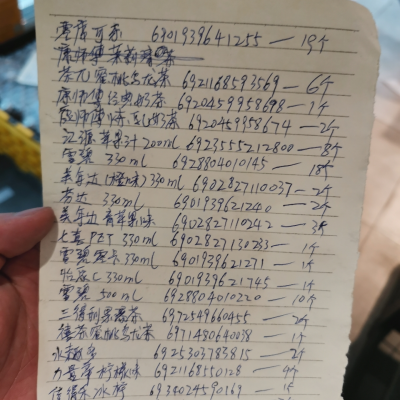 零度可乐 6901939641255 — 19个
康师傅茉莉
茶π蜜桃乌龙茶 6921168593569 — 6个
康师傅经典奶茶 6920459958698 — 1个
康师傅 奶茶 6920459958674 — 2个
汇源苹果汁200ml 6923555212800 — 8个
雪碧 330ml 6928804010145 — 18个
美年达(橙味)330ml 6902827110037 — 2个
芬达 330ml 6901939621240 — 2个
美年达青苹果味 6902827110242 — 3个
七喜PET 330ml 6902827130233 — 1个
雪碧零卡330ml 6901939621271 — 1个
怡泉C 330ml 6901939621745 — 1个
雪碧 500ml 6928804010220 — 10个
三得利 茶 6972549660455 — 2个
蜜桃乌龙茶 6971480640038 — 1个
水 6925303783815 — 2个
力量帝柠檬味 6921168550128 — 4个
佳得乐 柠 6934024590169 — 1个